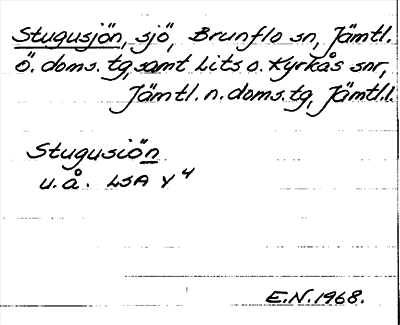 Stugusjön, sjö, Brunflo sn, Jämtl.
ö. doms. tg, samt Lits o. Kyrkås snr,
Jämtl. n. doms. tg, Jämtl. l.
Stugusiön
u. å. LSA Y 4
E.N. 1968.